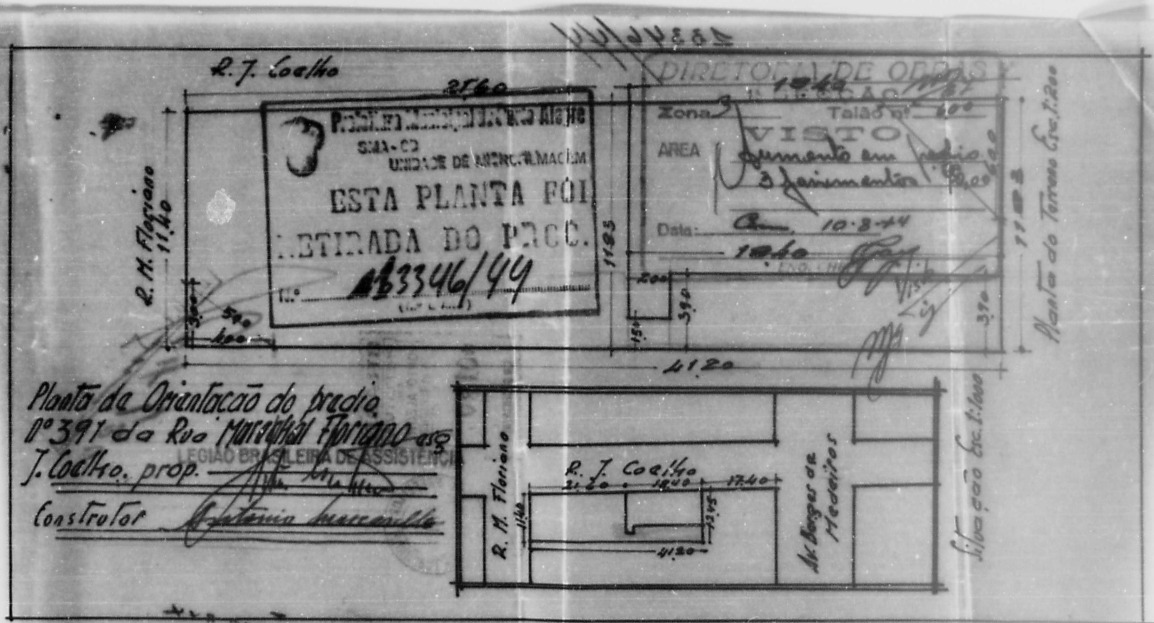 23346/44
R. J. Coelho
21.60
R. M. Floriano
11.40
Prefeitura Municipal de Porto Alegre
UNIDADE DE MICROFILMAGEM
ESTA PLANTA FOI
RETIRADA DO PROC.
Nº 23346/44
3.00
5.00
4.00
11.85
DIRETORIA DE OBRAS
19.40
Zona
Talão nº 600
VISTO
AREA
Aumento em predio
3 pavimentos
Data: 10-8-44
19.40
2.00
1.50
3.90
3.90
41.20
Planta do Terreno Esc. 1:200
Planta da Orientação do predio
nº 391 da Rua Marechal Floriano esq
J. Coelho. prop.
LEGIÃO BRASILEIRA DE ASSISTÊNCIA
Construtor Antonio
R. M. Floriano
R. J. Coelho
19.40 17.40
11.40
41.20
Av. Borges de
Medeiros
Situação Esc. 1:1000